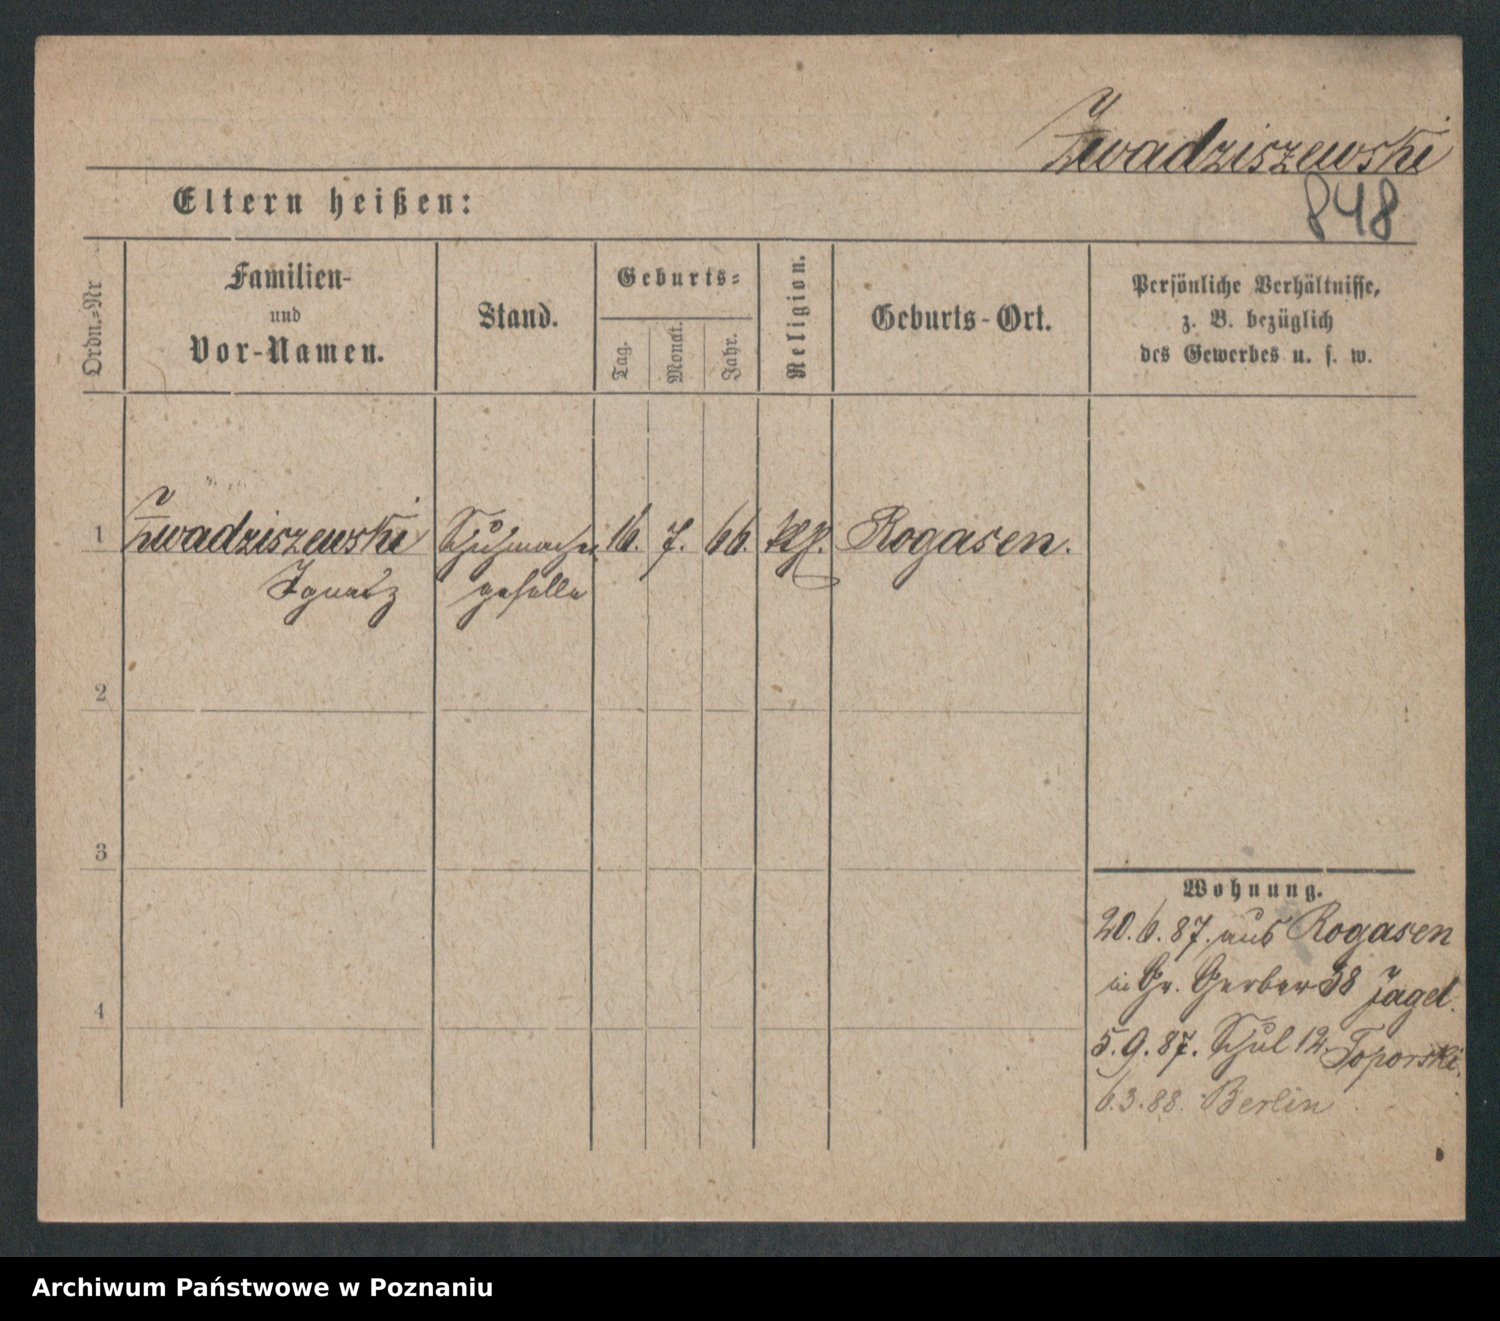 Zwadziszewski
848
Eltern heißen:
Ordn.-Nr
Familien-
und
Vor-Namen.
Stand.
Geburts-
Tag.
Monat.
Jahr.
Religion.
Geburts-Ort.
Persönliche Verhältnisse,
z. B. bezüglich
des Gewerbes u. s. w.
1 Zwadziszewski Schuhmacher 16. 7. 66. Rogasen.
Ignatz geselle
2
3
4
Wohnung.
20.6.87. aus Rogasen
in Gr. Gerber 38 Jagel.
5.9.87. Schul 12 Toporski.
6.3.88. Berlin
Archiwum Państwowe w Poznaniu